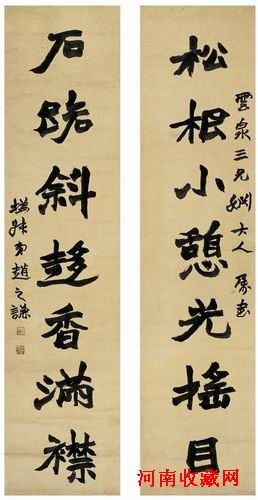 雲泉三兄婣大人 屬書
松根小憩光搖目
石斜香滿襟
撝叔弟趙之謙
河南收藏网